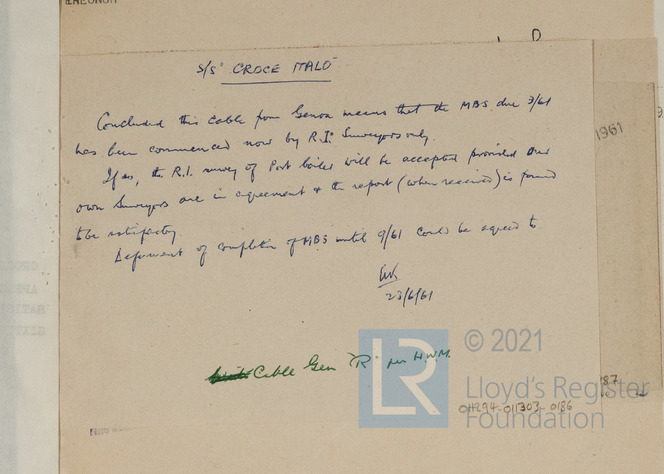 S/S "CROCE ITALO"
Concluded this cable from Genoa means that the MBS due 3/61
has been commenced now by R.I. Surveyors only.
If so, the R.I. survey of Port boiler will be accepted provided our
own Surveyors are in agreement & the report (when received) is found
to be satisfactory
Deferment of completion of MBS until 9/61 could be agreed to
23/6/61
Cable Gen "R" per H.W.M.
D
1961
'87
© 2021
LR
Lloyd's Register
Foundation
011294-011303-0186